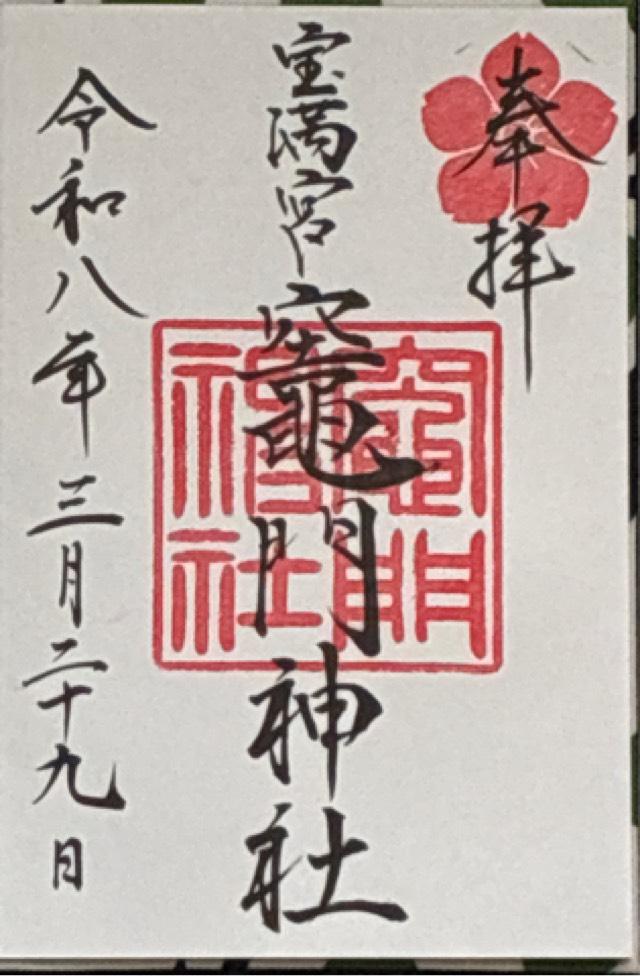 奉拝
宝満宮竈門神社
竈門
神社
令和八年三月二十九日